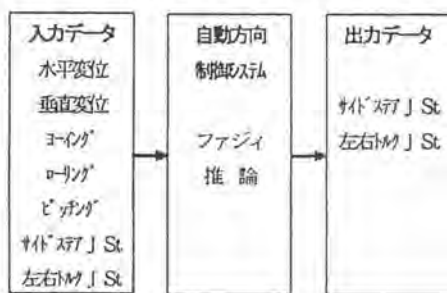 入力データ
水平変位
垂直変位
ﾖｰｲﾝｸﾞ
ﾛｰﾘﾝｸﾞ
ﾋﾟｯﾁﾝｸﾞ
ｻｲﾄﾞｽﾃｱ J St
左右ﾄﾙｸ J St
自動方向
制御ｼｽﾃﾑ
ファジィ
推 論
出力データ
ｻｲﾄﾞｽﾃｱ J St
左右ﾄﾙｸ J St